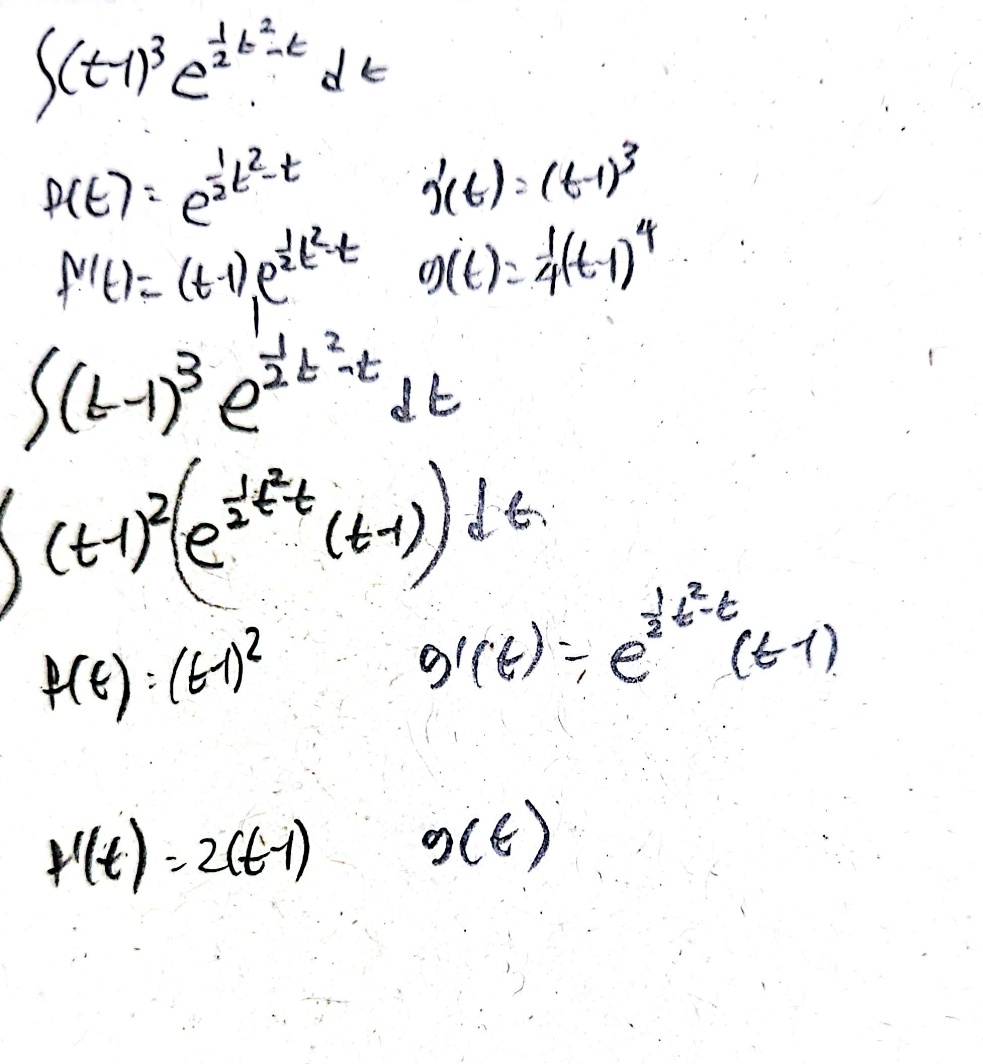 ∫(t-1)³ e^{½t²-t} dt
f(t) = e^{½t²-t} g'(t) = (t-1)³
f'(t) = (t-1) e^{½t²-t} g(t) = ¼(t-1)⁴
∫(t-1)³ e^{½t²-t} dt
∫(t-1)² (e^{½t²-t} (t-1)) dt
f(t) = (t-1)² g'(t) = e^{½t²-t} (t-1)
f'(t) = 2(t-1) g(t)